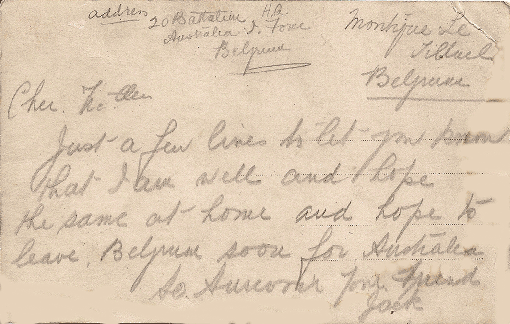 address
20 Battalion HQ
Australia I. Force
Belgium
Montigne Le
Belgium
Cher.
Just a few lines to let you know
that I am well and hope
the same at home and hope to
leave. Belgium soon for Australia
So Aurevoir Your Friend
Jack